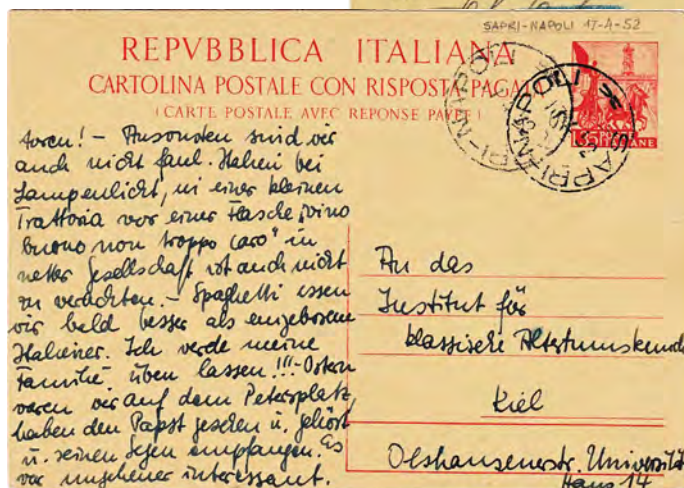 SAPRI-NAPOLI 17-4-52
REPVBBLICA ITALIANA
CARTOLINA POSTALE CON RISPOSTA PAGATA
(CARTE POSTALE AVEC REPONSE PAYEE)
SAPRI-NAPOLI
SAPRI-NAPOLI
toren! – Ansonsten sind wir
auch nicht faul. Italien bei
Lampenlicht, in einer kleinen
Trattoria vor einer Flasche „vino
buono non troppo caro" in
netter Gesellschaft ist auch nicht
zu verachten. – Spaghetti essen
wir bald besser als eingeborene
Italiener. Ich werde meine
Familie üben lassen!!! – Ostern
waren wir auf dem Petersplatz,
haben den Papst gesehen u. gehört
u. seinen Segen empfangen. Es
war ungeheuer interessant.
An das
Institut für
klassische Altertumskunde
Kiel
Olshausenerstr. Universität
Haus 14